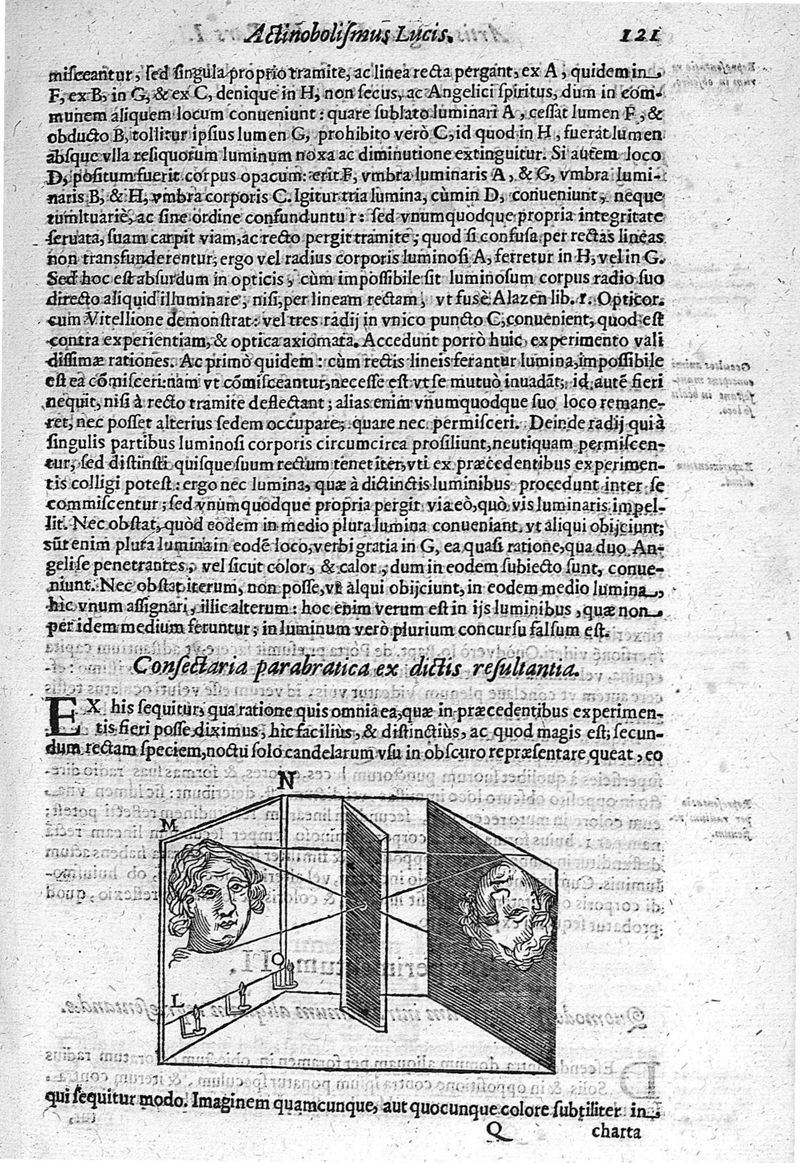 Actinobolismus Lucis. 121
misceantur, sed singula proprio tramite, ac linea recta pergant, ex A, quidem in
F, ex B, in G, & ex C, denique in H, non secus, ac Angelici spiritus, dum in com-
munem aliquem locum conueniunt: quare sublato luminari A, cessat lumen F, &
obducto B, tollitur ipsius lumen G, prohibito verò C, id quod in H, fuerat lumen
absque vlla resiquorum luminum noxa ac diminutione extinguitur. Si autem loco
D, positum fuerit corpus opacum: erit F, vmbra luminaris A, & G, vmbra lumi-
naris B, & H, vmbra corporis C. Igitur tria lumina, cùm in D, conueniunt, neque
tumultuariè, ac sine ordine confunduntur: sed vnumquodque propria integritate
seruata, suam carpit viam, ac recto pergit tramite; quod si confusa per rectas lineas
non transfunderentur, ergo vel radius corporis luminosi A, ferretur in H, vel in G.
Sed hoc est absurdum in opticis, cùm impossibile sit luminosum corpus radio suo
directo aliquid illuminare, nisi, per lineam rectam, vt fusè Alazen lib. 1. Opticor.
cum Vitellione demonstrat: vel tres radij in vnico puncto C, conuenient, quod est
contra experientiam, & optica axiomata. Accedunt porrò huic experimento vali
dissimæ rationes. Ac primò quidem: cùm rectis lineis ferantur lumina, impossibile
est ea cōmisceri: nam vt cōmisceantur, necesse est vt se mutuò inuadāt; id autē fieri
nequit, nisi à recto tramite deflectant; alias enim vnumquodque suo loco remane-
ret, nec posset alterius sedem occupare; quare nec permisceri. Deinde radij qui à
singulis partibus luminosi corporis circumcirca prosiliunt, neutiquam permiscen-
tur, sed distincti quisque suum rectum tenet iter, vti ex præcedentibus experimen-
tis colligi potest: ergo nec lumina, quæ à dictinctis luminibus procedunt inter se
commiscentur; sed vnumquodque propria pergit via eò, quò vis luminaris impel-
lit. Nec obstat, quòd eodem in medio plura lumina conueniant, vt aliqui obijciunt;
sūt enim plura lumina in eodē loco, verbi gratia in G, ea quasi ratione, qua duo An-
geli se penetrantes, vel sicut color, & calor, dum in eodem subiecto sunt, conue-
niunt. Nec obstat iterum, non posse, vt alqui obijciunt, in eodem medio lumina,
hìc vnum assignari, illic alterum: hoc enim verum est in ijs luminibus, quæ non
per idem medium feruntur; in luminum verò plurium concursu falsum est.
Consectaria parabratica ex dictis resultantia.
EX his sequitur, qua ratione quis omnia ea, quæ in præcedentibus experimen-
tis fieri posse diximus, hìc facilius, & distinctius, ac quod magis est, secun-
dum rectam speciem, noctu solo candelarum vsu in obscuro repræsentare queat, eo
N
M
O
L
qui sequitur modo. Imaginem quamcunque, aut quocunque colore subtiliter in
Q charta